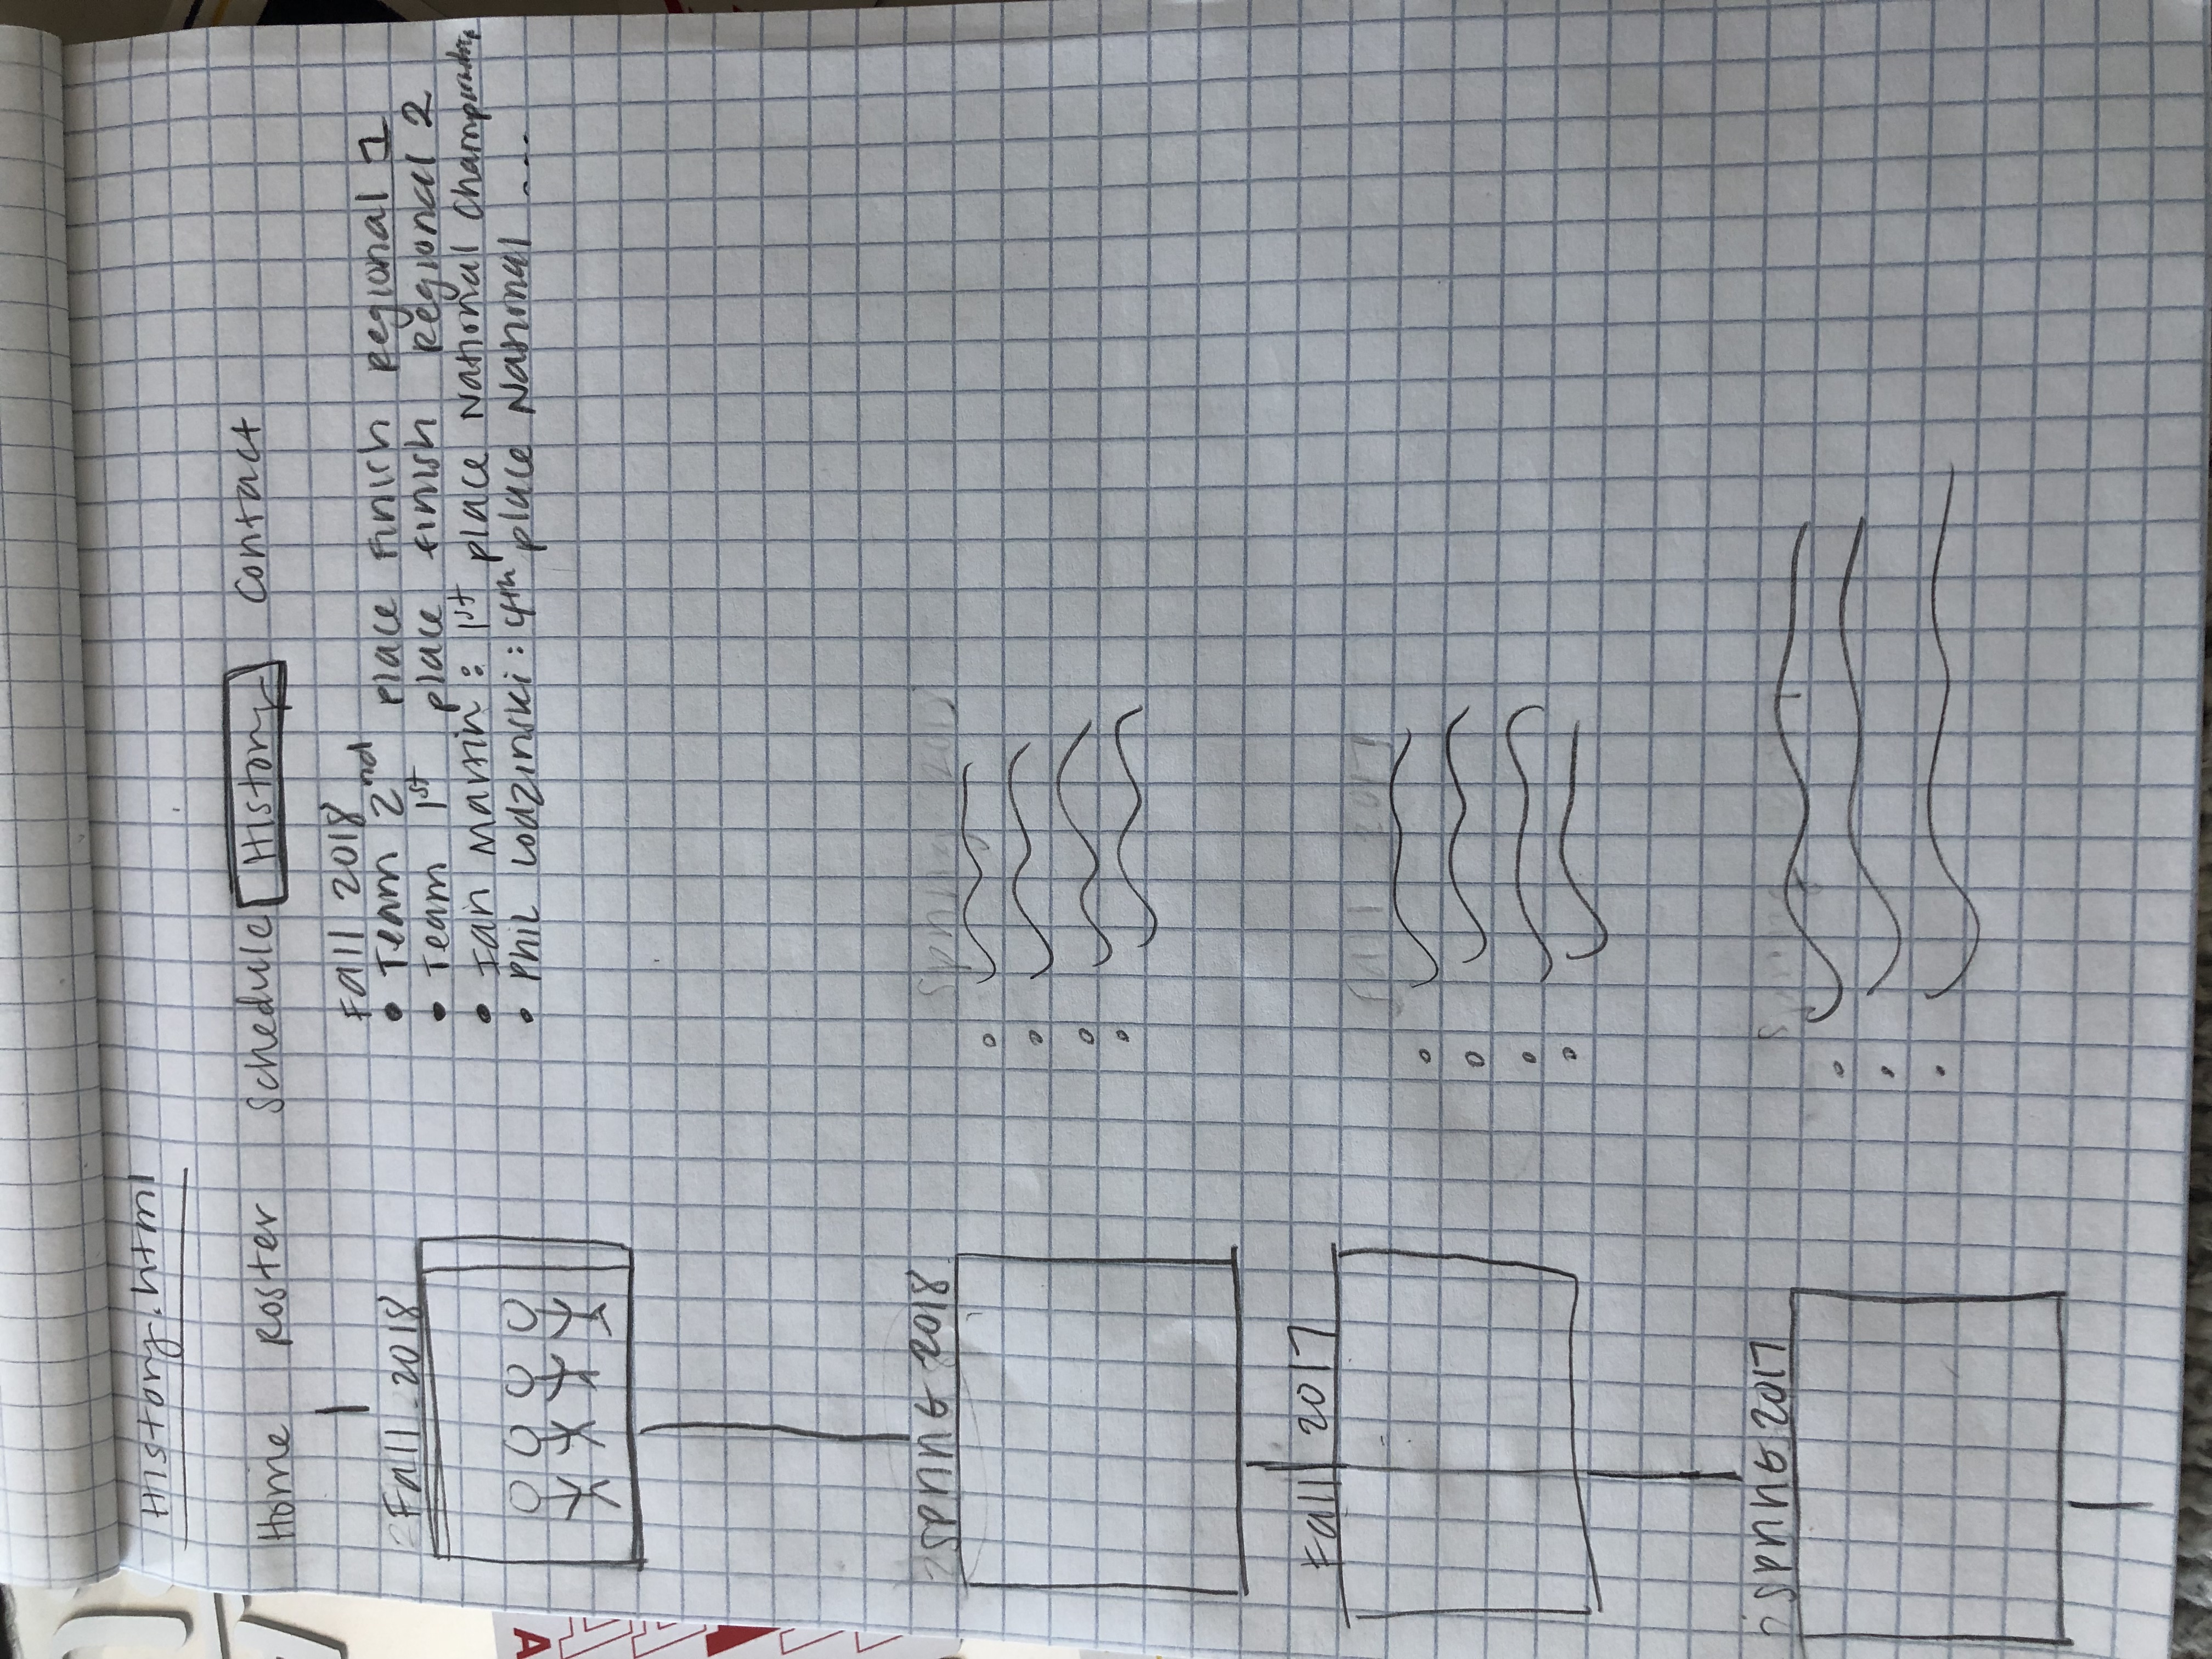 History.html
Home Roster Schedule History Contact
Fall 2018
Fall 2018
• Team 2nd place finish Regional 1
• Team 1st place finish Regional 2
• Ian Martin: 1st place National
• Phil Lodzinski: 4th place National ...
Spring 2018
Fall 2017
Fall 2017
Spring 2017
A